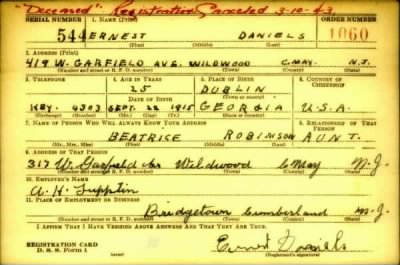 "Deceased" Registration Canceled 3-10-43
SERIAL NUMBER 1. NAME (Print) ORDER NUMBER
544 ERNEST DANIELS 1060
(First) (Middle) (Last)
2. ADDRESS (Print)
419 W. GARFIELD AVE. WILDWOOD C.MAY. N.J.
(Number and street or R. F. D. number) (Town) (County) (State)
3. TELEPHONE 4. AGE IN YEARS 5. PLACE OF BIRTH 6. COUNTRY OF CITIZENSHIP
25 DUBLIN
DATE OF BIRTH (Town or county)
KEY. 4303 SEPT. 22 1915 GEORGIA U.S.A.
(Exchange) (No.) (Mo.) (Day) (Yr.) (State or country)
7. NAME OF PERSON WHO WILL ALWAYS KNOW YOUR ADDRESS 8. RELATIONSHIP OF THAT PERSON
BEATRICE ROBINSON AUNT.
(Mr., Mrs., Miss) (First) (Middle) (Last)
9. ADDRESS OF THAT PERSON
317 W. Garfield Ave Wildwood C May N-J.
(Number and street or R. F. D. number) (Town) (County) (State)
10. EMPLOYER'S NAME
A. H. Supplin
11. PLACE OF EMPLOYMENT OR BUSINESS
Bridgetown Cumberland N-J.
(Number and street or R. F. D. number) (Town) (County) (State)
I AFFIRM THAT I HAVE VERIFIED ABOVE ANSWERS AND THAT THEY ARE TRUE.
REGISTRATION CARD
D. S. S. Form 1 (over) Ernest Daniels
(Registrant's signature)